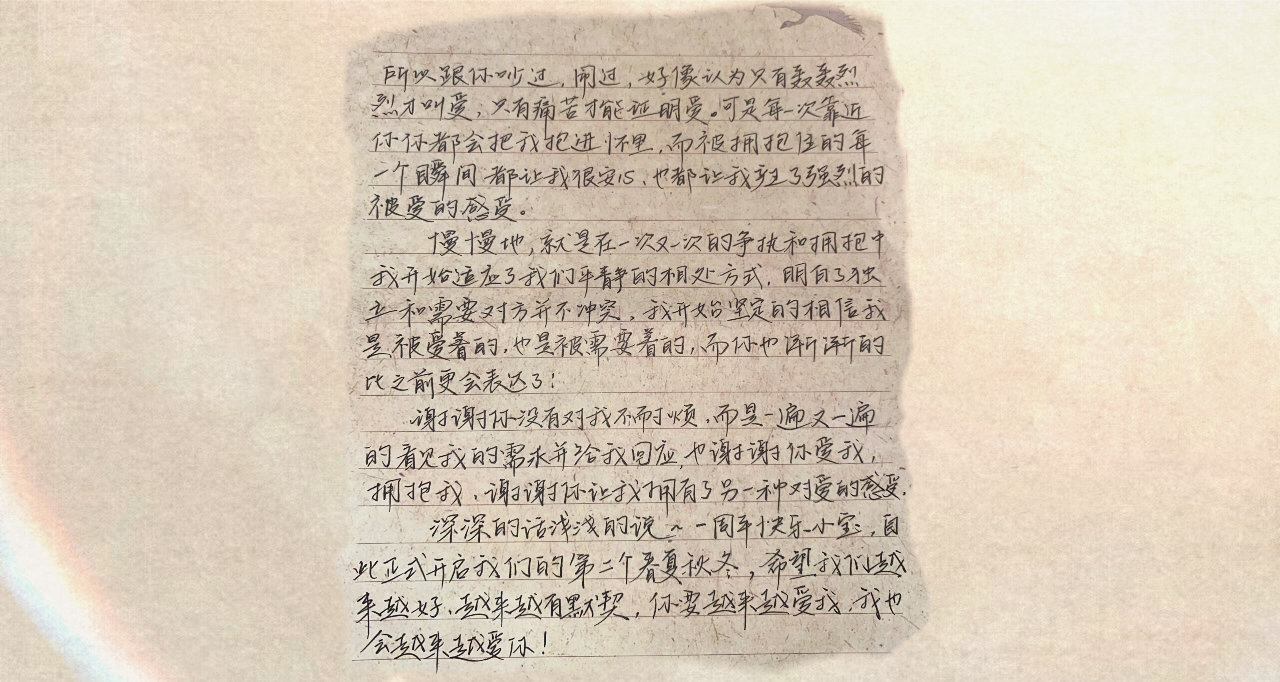 所以跟你吵过,闹过,好像认为只有轰轰烈
烈才叫爱,只有痛苦才能证明爱。可是每一次靠近
你你都会把我抱进怀里,而被拥抱住的每
一个瞬间都让我很安心,也都让我产生了强烈的
被爱的感受。
慢慢地,就是在一次又一次的争执和拥抱中
我开始适应了我们平静的相处方式,明白了独
立和需要对方并不冲突,我开始坚定的相信我
是被爱着的,也是被需要着的,而你也渐渐的
比之前更会表达了!
谢谢你没有对我不耐烦,而是一遍又一遍
的看见我的需求并给我回应,也谢谢你爱我,
拥抱我,谢谢你让我拥有了另一种对爱的感受.
深深的话浅浅的说~一周年快乐小宝,自
此正式开启我们的第二个春夏秋冬,希望我们越
来越好,越来越有默契,你要越来越爱我,我也
会越来越爱你!